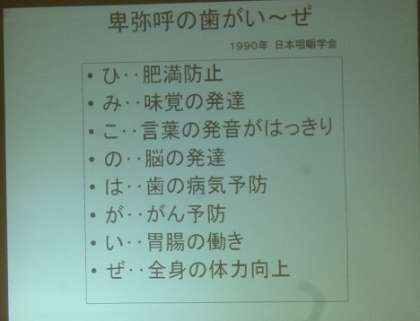 卑弥呼の歯がい～ぜ
1990年 日本咀嚼学会
・ひ‥肥満防止
・み‥味覚の発達
・こ‥言葉の発音がはっきり
・の‥脳の発達
・は‥歯の病気予防
・が‥がん予防
・い‥胃腸の働き
・ぜ‥全身の体力向上